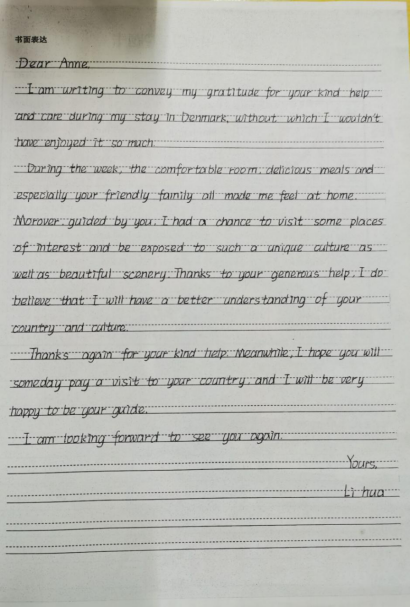 书面表达
Dear Anne,
I am writing to convey my gratitude for your kind help
and care during my stay in Denmark, without which I wouldn't
have enjoyed it so much.
During the week, the comfortable room, delicious meals and
especially your friendly family all made me feel at home.
Morover, guided by you, I had a chance to visit some places
of interest and be exposed to such a unique culture as
well as beautiful scenery. Thanks to your generous help, I do
believe that I will have a better understanding of your
country and culture.
Thanks again for your kind help. Meanwhile, I hope you will
someday pay a visit to your country, and I will be very
happy to be your guide.
I am looking forward to see you again.
Yours,
Li hua